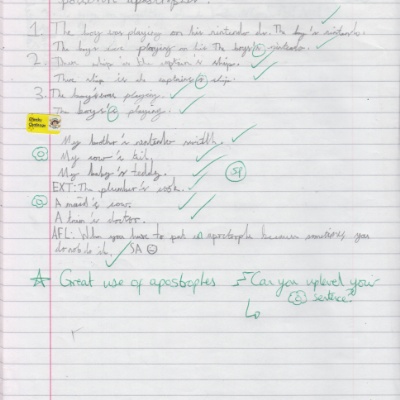 possessive apostrophes.
1. The boy was playing on his nintendo ds. The boy's nintendo.
The boys are playing on his The boys' nintendo.
2. Their ship is the captain's ship.
Their ship is the captains' ship.
3. The boy's playing.
The boys' playing.
My brother's nintendo
My cow's tail.
My baby's teddy.
sp
EXT: The plumber's
A maid's cows.
A town's doctor.
AFL: When you have to put a apostrophe because sometimes you
do not do it. SA
Great use of apostrophes Can you uplevel your
sentence?